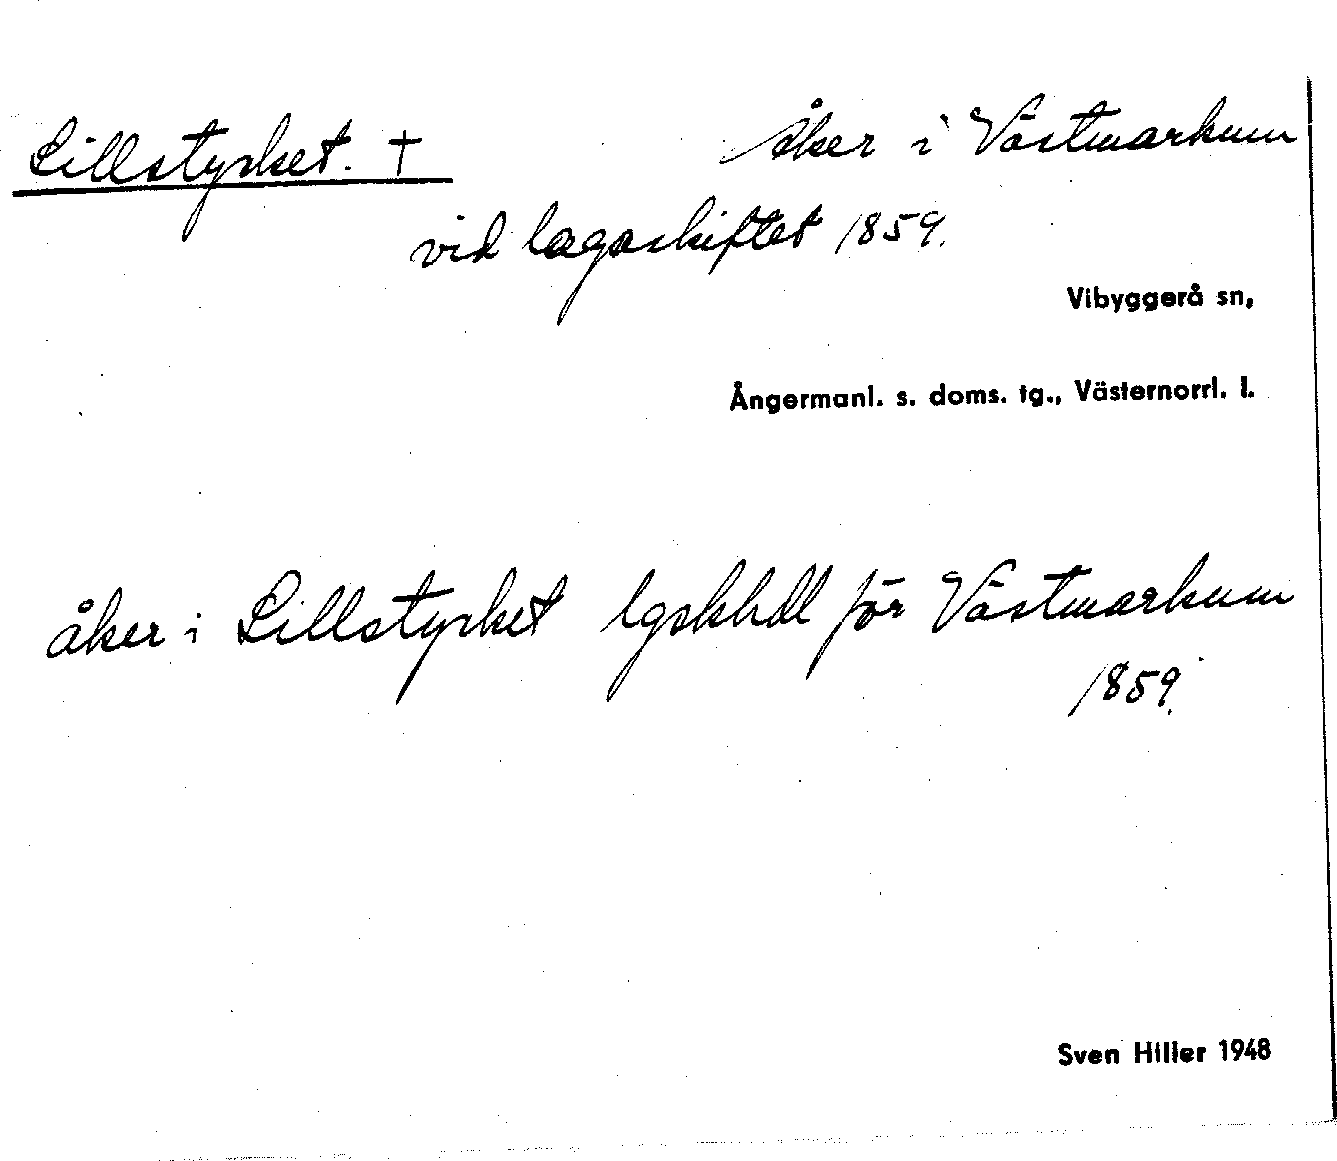 Lillstycket. † Åker i Västmarkum
vid lagaskiftet 1859.
Vibyggerå sn,
Ångermanl. s. doms. tg., Västernorrl. l.
åker i Lillstycket lgskhdl för Västmarkum
1859.
Sven Hiller 1948